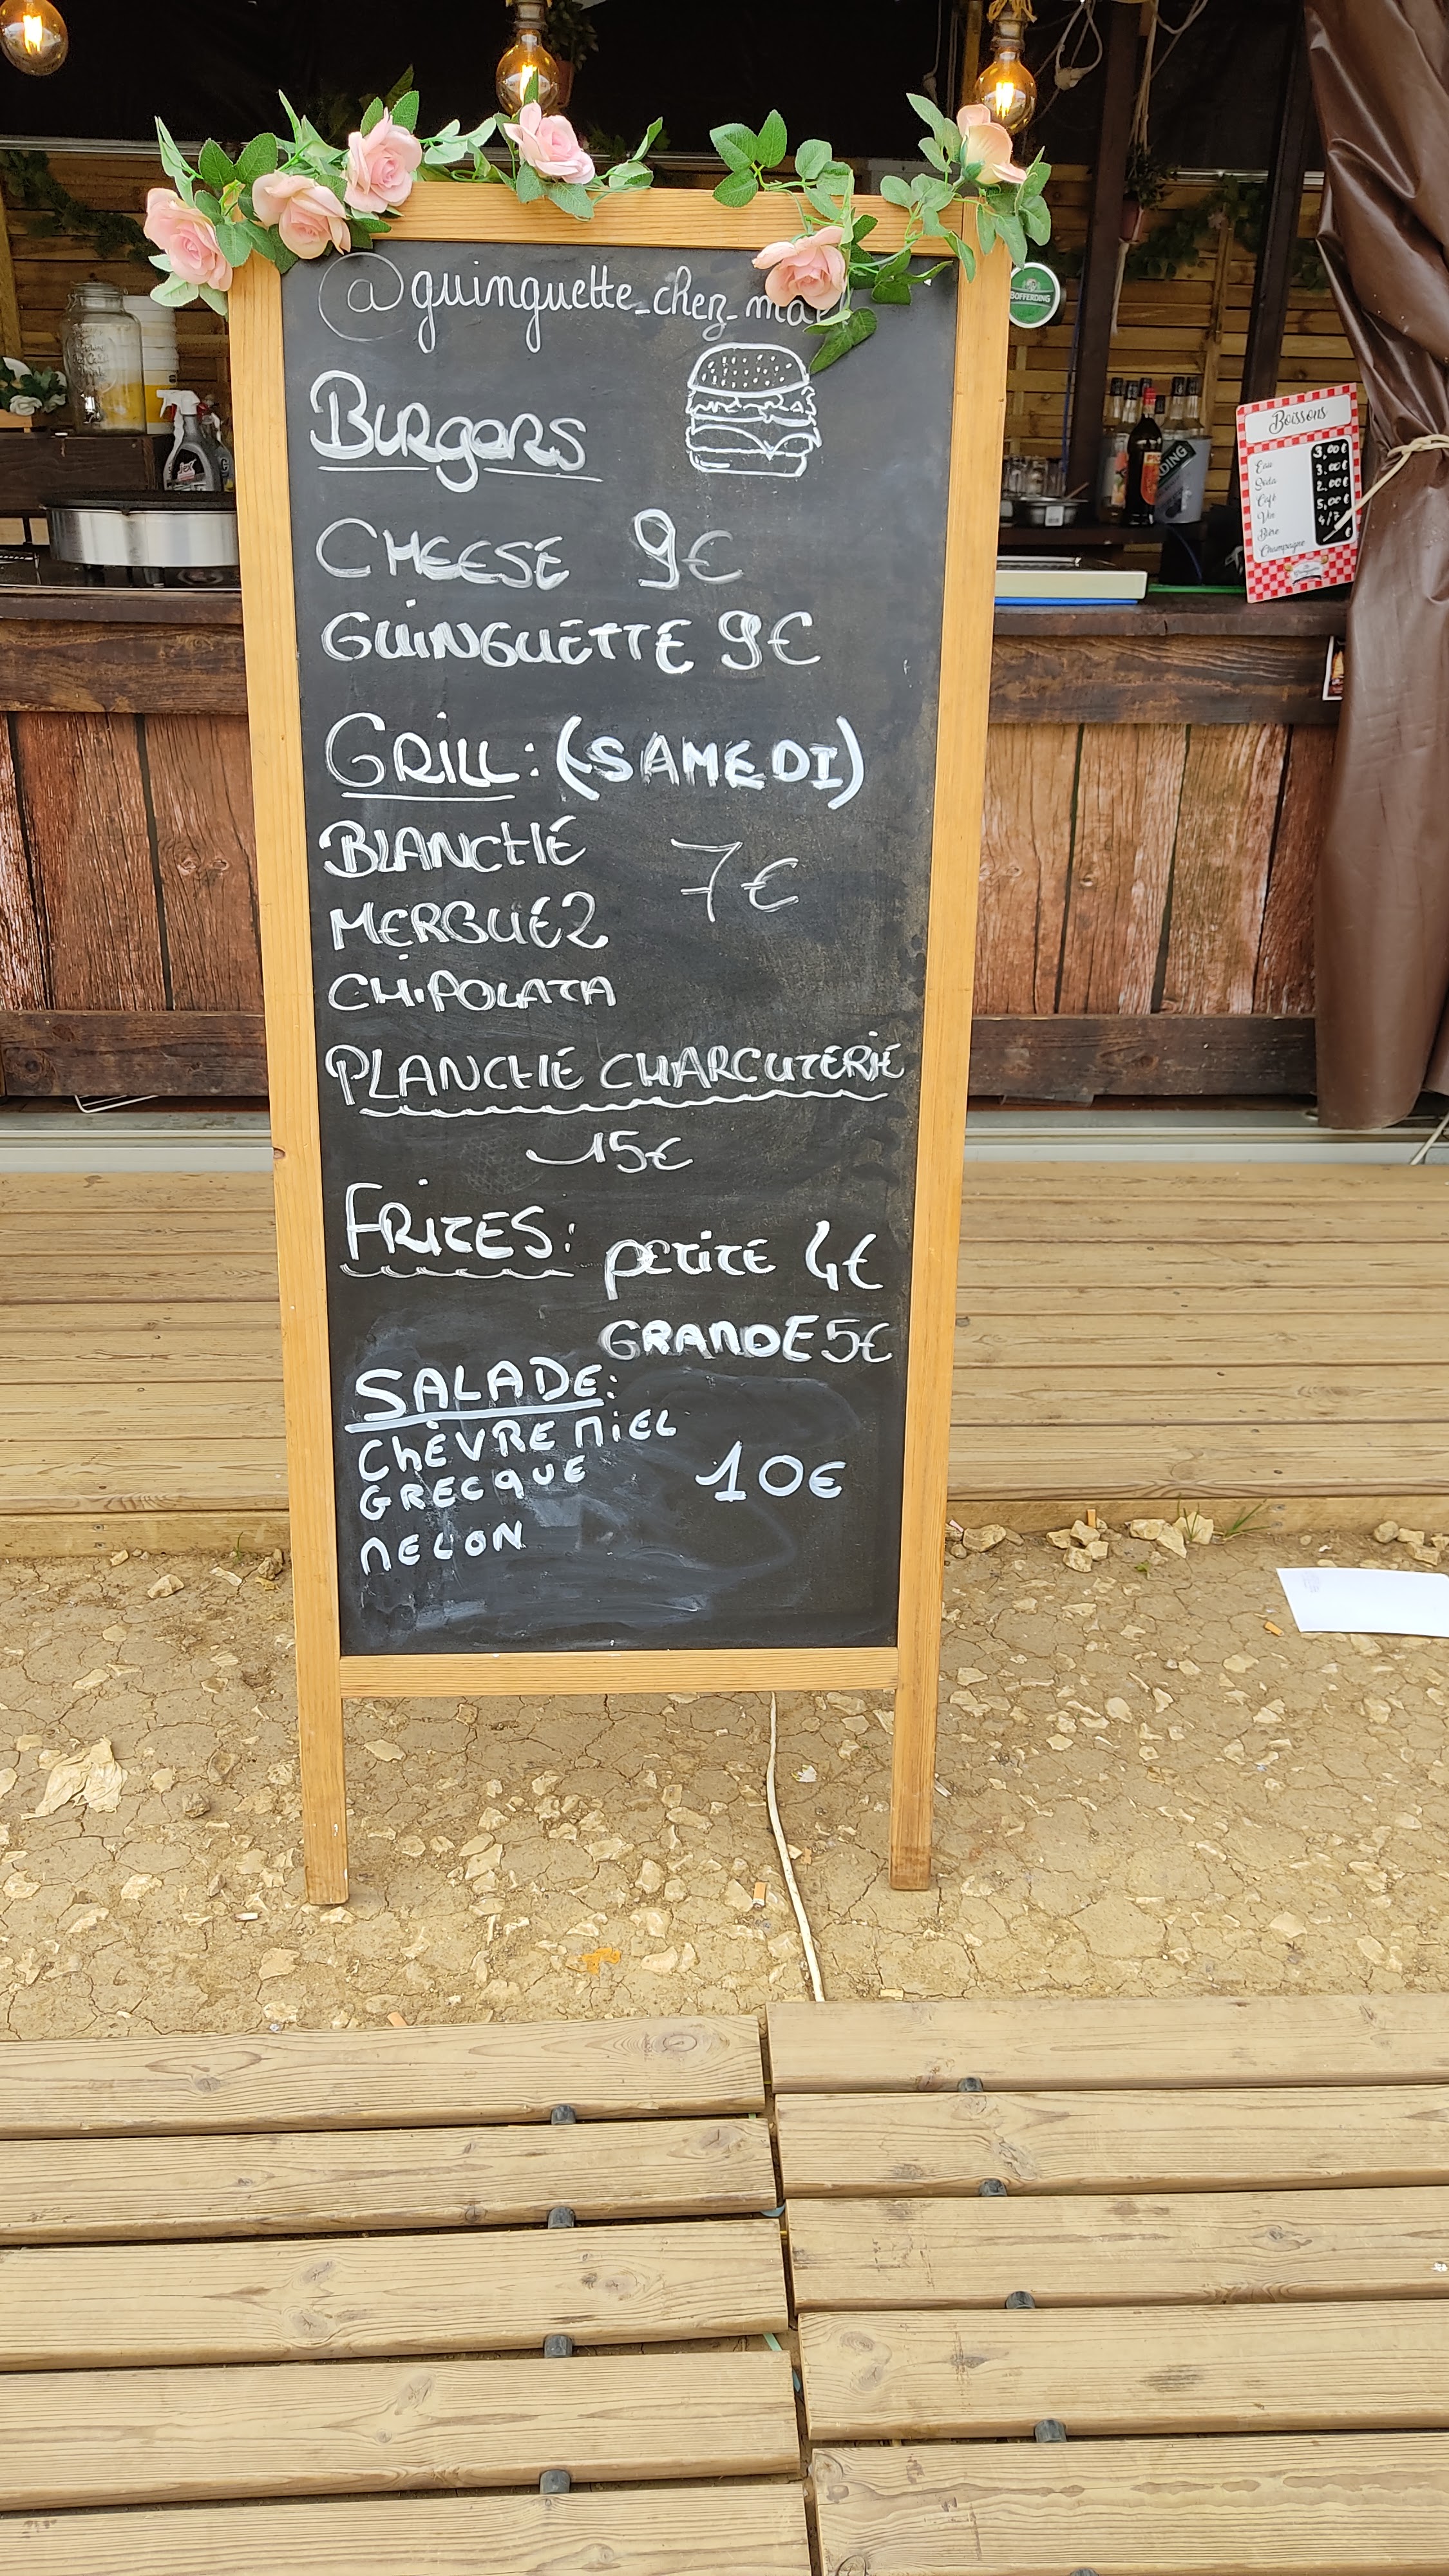 @guinguette_chez_ma
Burgers
CHEESE 9€
GUINGUETTE 9€
GRILL : (SAMEDI)
BLANCHE 7€
MERGUEZ
CHIPOLATA
PLANCHE CHARCUTERIE
15€
FRITES : petite 4€
GRANDE 5€
SALADE :
CHÈVRE MIEL
GRECQUE 10€
MELON
BOFFERDING
DING
Boissons
Eau 3,00€
Soda 3.00€
Café 2,00€
Vin 5,00€
Bière 4/7
Champagne €